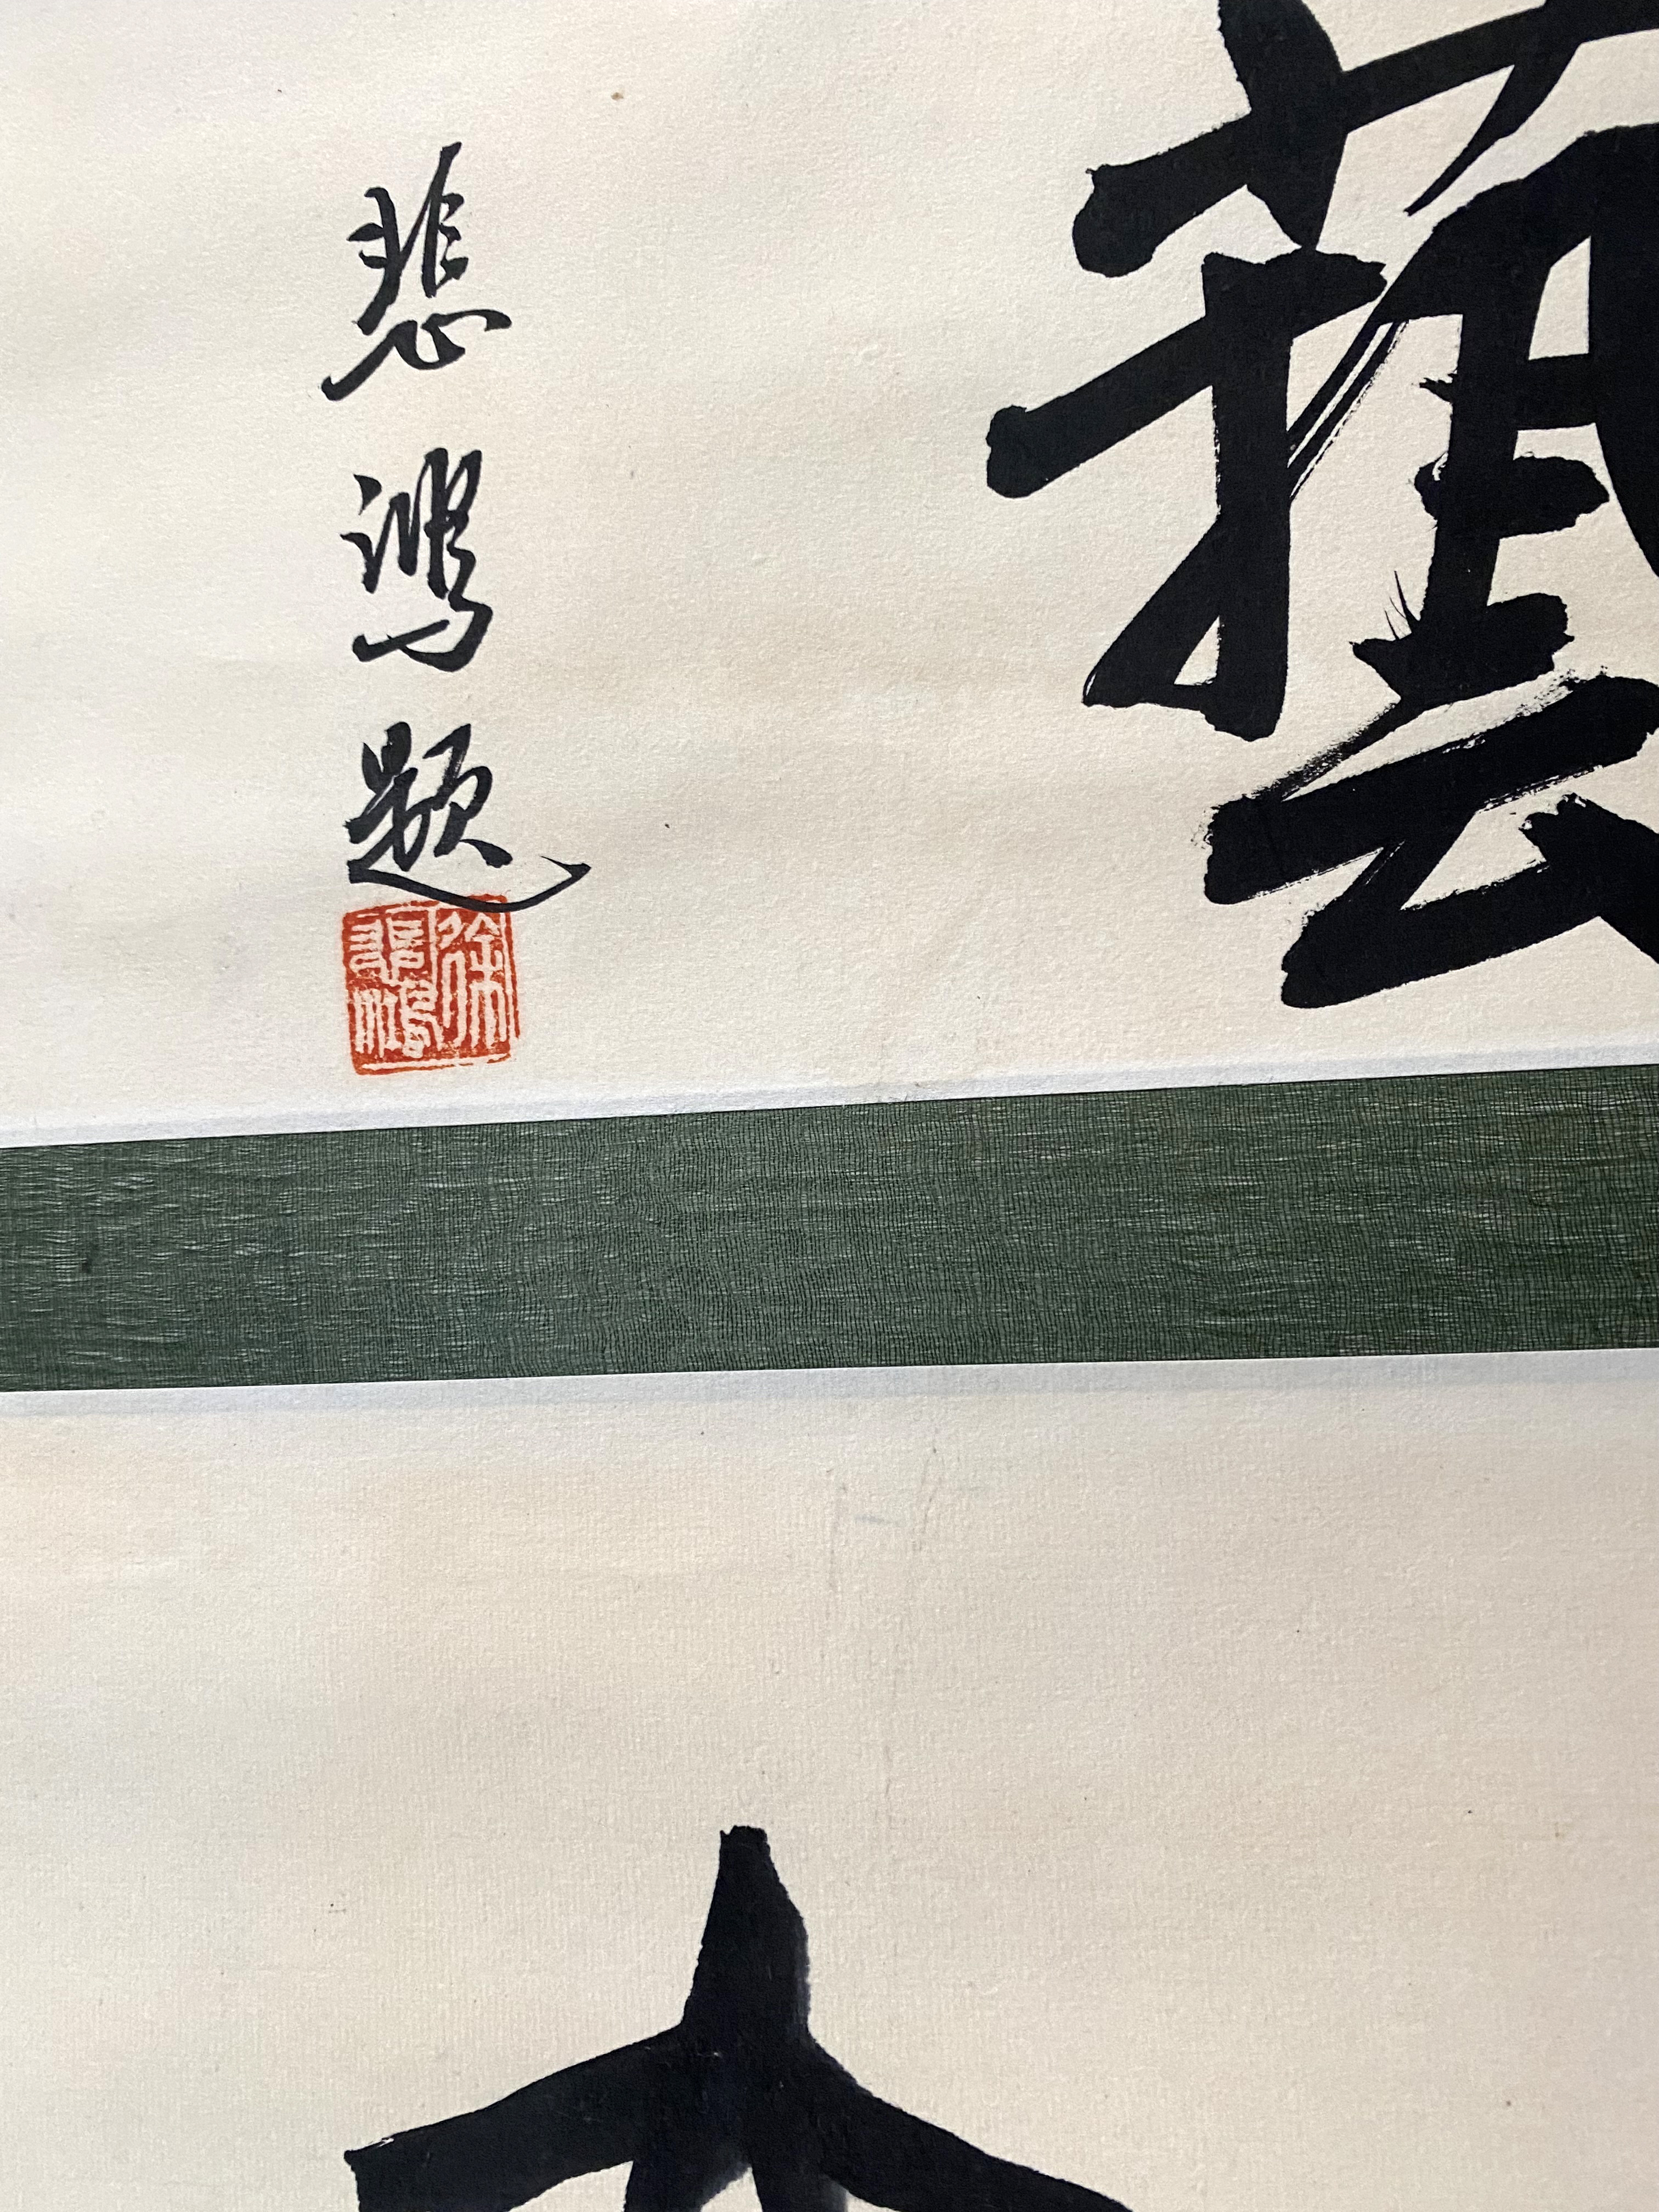 藝
悲鴻題
徐悲鴻